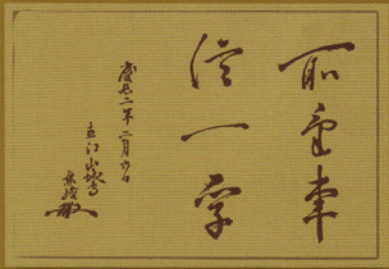 所事
信一字
慶長二年二月六日
直江山城守
兼続